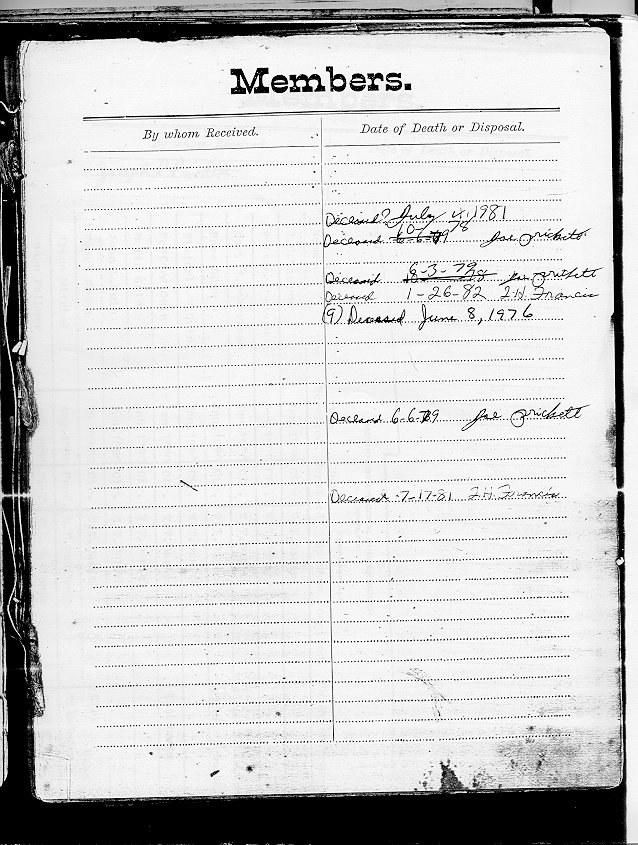 Members.
By whom Received. Date of Death or Disposal.
Deceased? July 4, 1981
10/ 78
Deceased 6-6-79 Joe Prickett
Deceased 8-3-79 Joe Prickett
Deceased 1-26-82 F.H. Francis
(9) Deceased June 8, 1976
Deceased 6-6-79 Joe Prickett
Deceased 7-17-81 F.H. Francis